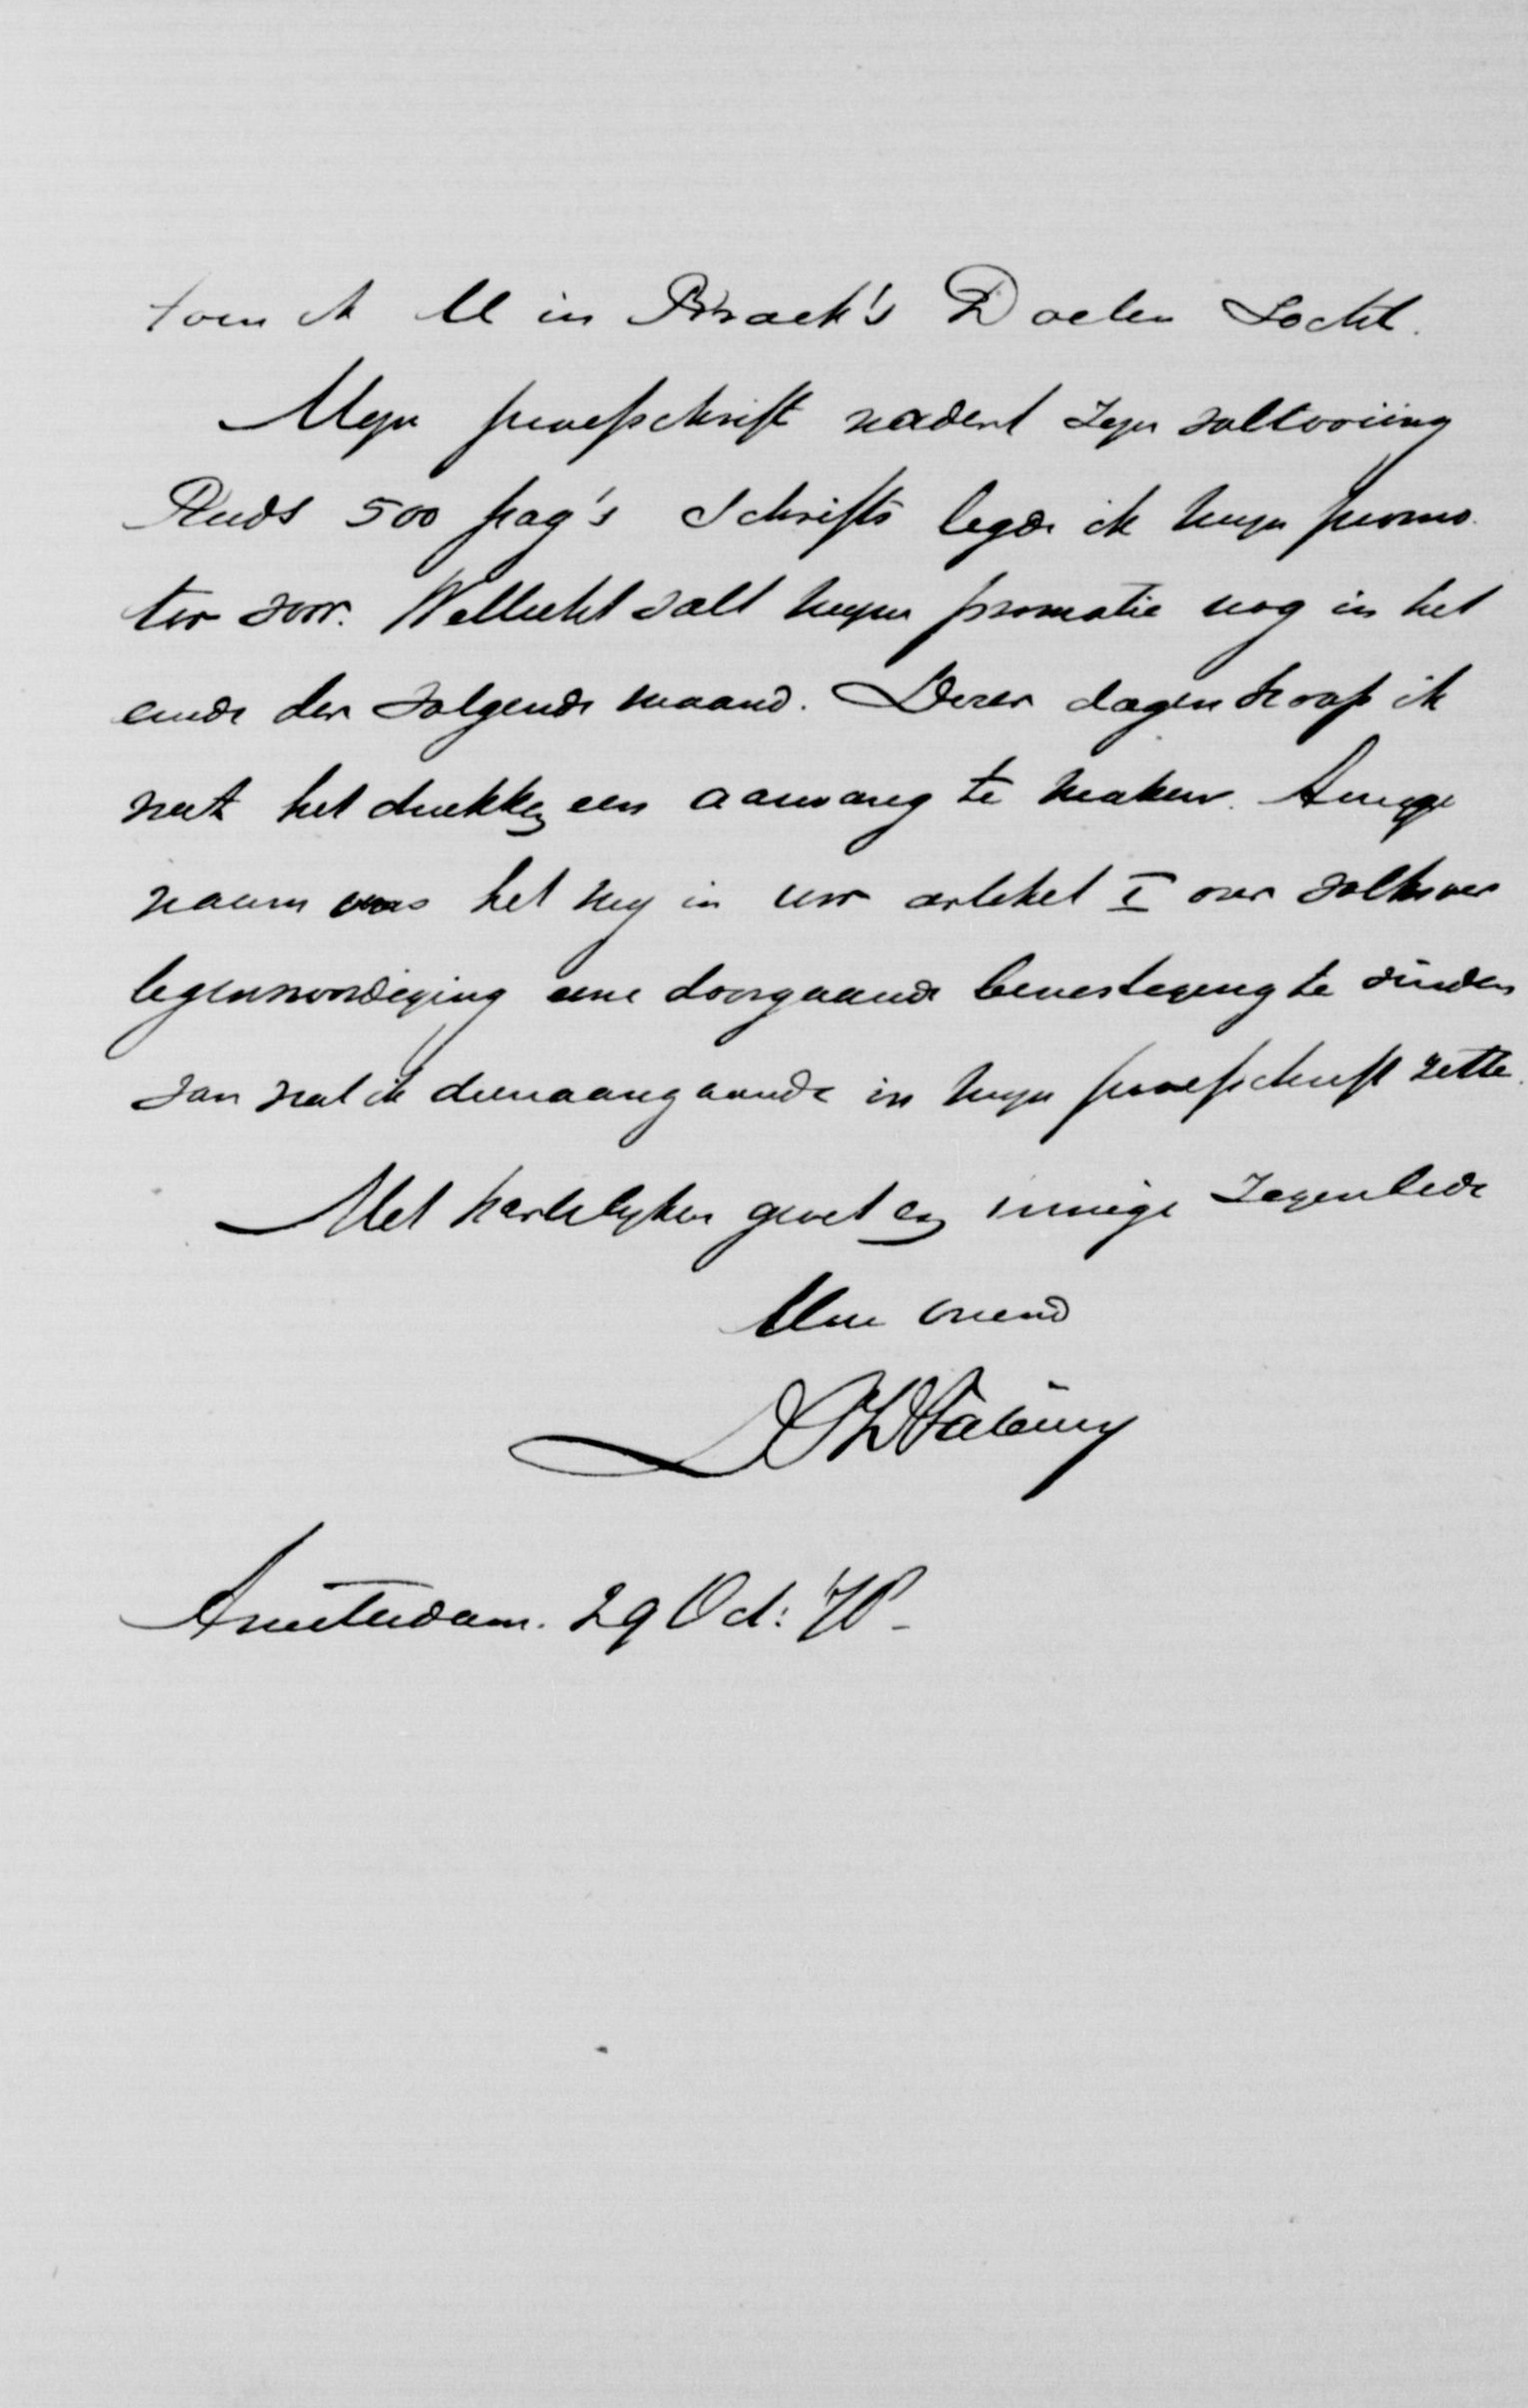 toen ik U in Brack's Doelen zocht.
Mijn proefschrift nadert zijn voltooiing
Reeds 500 pag's schrifts legde ik mijn promo
tor voor. Wellicht valt mijn promotie nog in het
einde der volgende maand. Dezer dagen hoop ik
met het drukken een aanvang te maken. Aange
naam was het mij in uw artikel I over volksver
tegenwoordiging eene doorgaande bevestiging te vinden
van wat ik dienaangaande in mijn proefschrift zette.
Met hartelijken groet en innige zegenbede
Uw vriend
DPDFabius
Amsterdam. 29 Oct: '78.